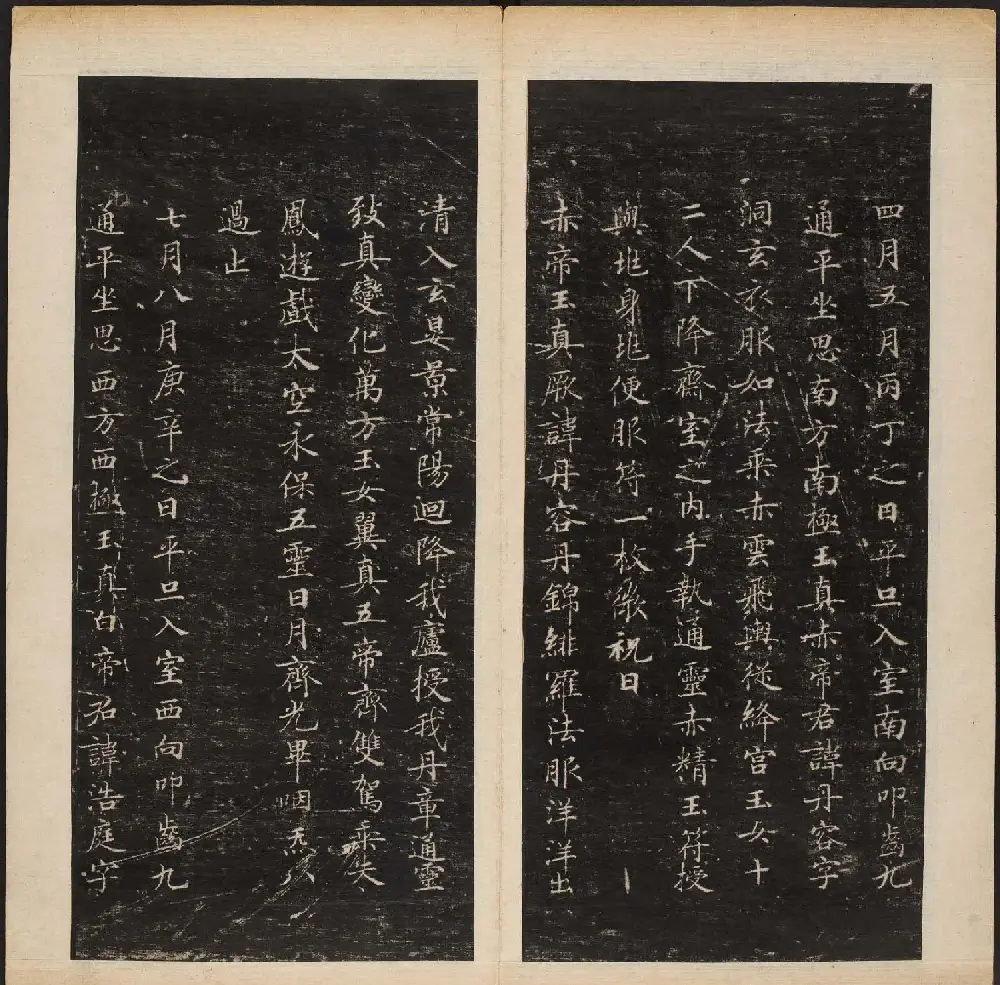 四月五月丙丁之日平旦入室南向叩齒九
通平坐思南方南極玉真赤帝君諱丹容字
洞玄衣服如法乘赤雲飛輿從絳宮玉女十
二人下降齋室之內手執通靈赤精玉符授
與兆身兆便服符一枚微祝曰
赤帝玉真厥諱丹容丹錦緋羅法服洋洋出
清入玄晏景常陽迴降我廬授我丹章通靈
致真變化萬方玉女翼真五帝齊雙駕乘
鳳遊戲太空永保五靈日月齊光畢咽炁八
過止
七月八月庚辛之日平旦入室西向叩齒九
通平坐思西方西極玉真白帝君諱浩庭字